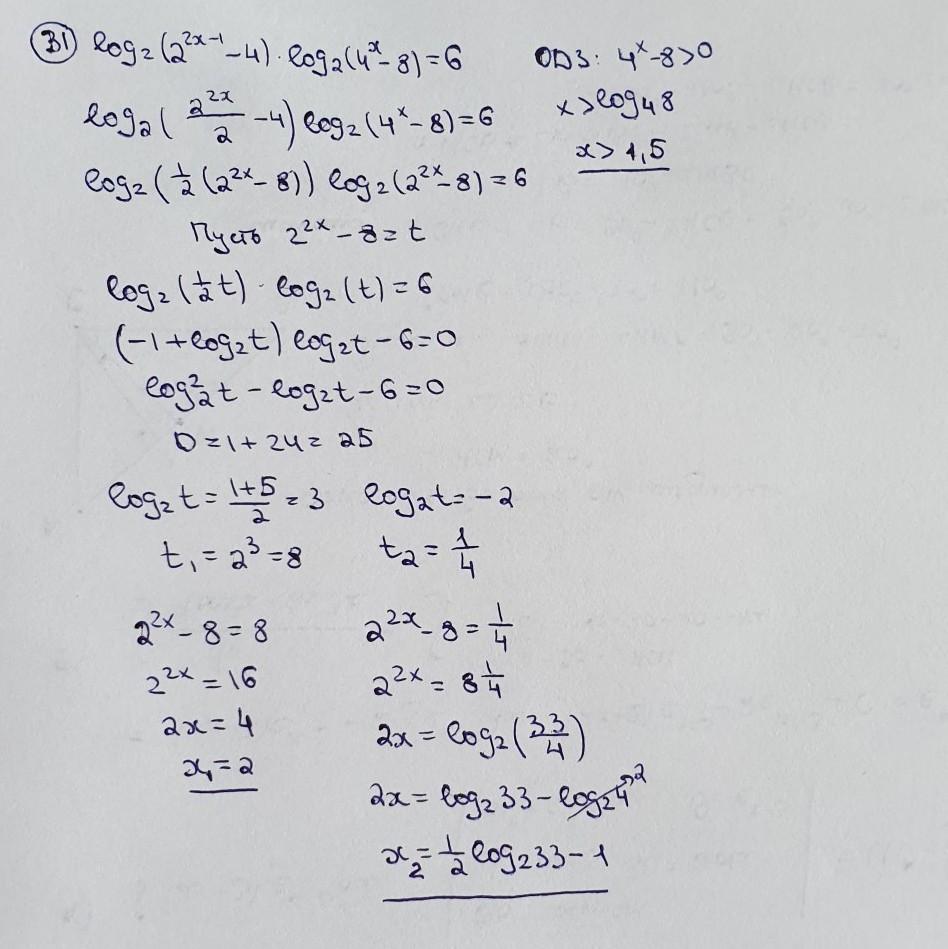 31 log₂(2²ˣ⁻¹-4)·log₂(4ˣ-8)=6 ОДЗ: 4ˣ-8>0
log₂(2²ˣ/2 -4) log₂(4ˣ-8)=6 x>log₄8
x>1,5
log₂(½(2²ˣ-8)) log₂(2²ˣ-8)=6
Пусть 2²ˣ-8=t
log₂(½t)·log₂(t)=6
(-1+log₂t) log₂t-6=0
log₂²t-log₂t-6=0
D=1+24=25
log₂t=(1+5)/2=3 log₂t=-2
t₁=2³=8 t₂=1/4
2²ˣ-8=8 2²ˣ-8=1/4
2²ˣ=16 2²ˣ=8 1/4
2x=4 2x=log₂(33/4)
x₁=2 2x=log₂33-log₂4 2
x₂=½log₂33-1